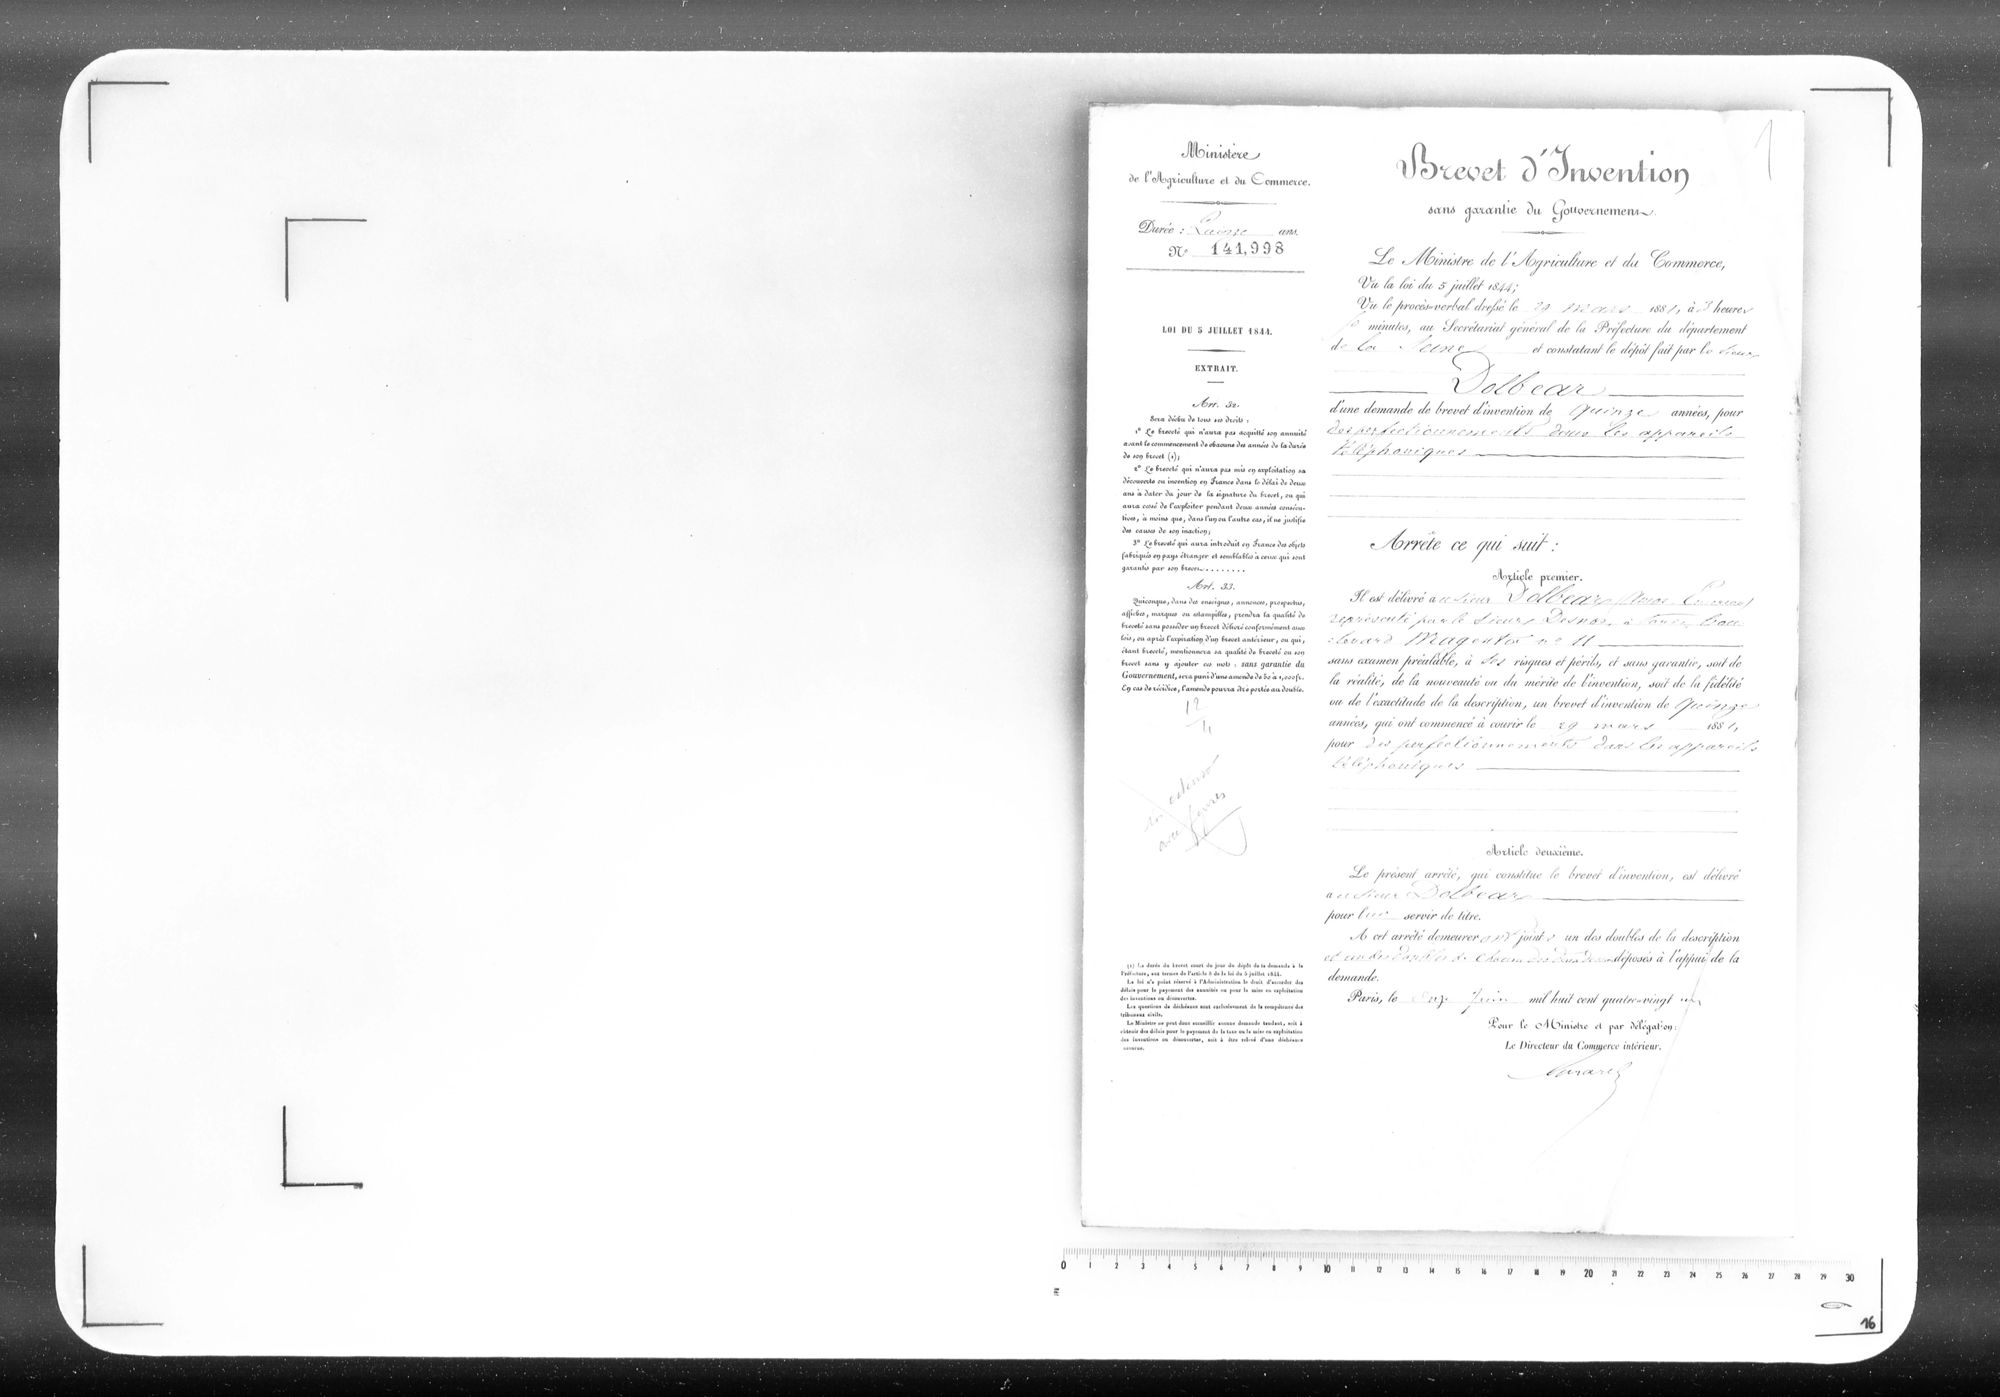 Ministère
de l'Agriculture et du Commerce.
Durée : Quinze ans.
N° 141,998
LOI DU 5 JUILLET 1844.
EXTRAIT.
Art. 32.
Sera déchu de tous ses droits :
1° Le breveté qui n'aura pas acquitté son annuité
avant le commencement de chacune des années de la durée
de son brevet (1);
2° Le breveté qui n'aura pas mis en exploitation sa
découverte ou invention en France dans le délai de deux
ans à dater du jour de la signature du brevet, ou qui
aura cessé de l'exploiter pendant deux années consécu-
tives, à moins que, dans l'un ou l'autre cas, il ne justifie
des causes de son inaction;
3° Le breveté qui aura introduit en France des objets
fabriqués en pays étranger et semblables à ceux qui sont
garantis par son brevet........
Art. 33.
Quiconque, dans des enseignes, annonces, prospectus,
affiches, marques ou estampilles, prendra la qualité de
breveté sans posséder un brevet délivré conformément aux
lois, ou après l'expiration d'un brevet antérieur, ou qui,
étant breveté, mentionnera sa qualité de breveté ou son
brevet sans y ajouter ces mots : sans garantie du
Gouvernement, sera puni d'une amende de 50 à 1,000 fr.
En cas de récidive, l'amende pourra être portée au double.
12
4
in extenso
avec figures
(1) La durée du brevet court du jour du dépôt de la demande à la
Préfecture, aux termes de l'article 8 de la loi du 5 juillet 1844.
La loi n'a point réservé à l'Administration le droit d'accorder des
délais pour le payement des annuités ou pour la mise en exploitation
des inventions ou découvertes.
Les questions de déchéance sont exclusivement de la compétence des
tribunaux civils.
Le Ministre ne peut donc accueillir aucune demande tendant, soit à
obtenir des délais pour le payement de la taxe ou la mise en exploitation
des inventions ou découvertes, soit à être relevé d'une déchéance
encourue.
1
Brevet d'Invention
sans garantie du Gouvernement.
Le Ministre de l'Agriculture et du Commerce,
Vu la loi du 5 juillet 1844;
Vu le procès-verbal dressé le 29 mars 1881, à 3 heures
minutes, au Secrétariat général de la Préfecture du département
de la Seine et constatant le dépôt fait par le sieur
Dolbear
d'une demande de brevet d'invention de quinze années, pour
des perfectionnements dans les appareils
téléphoniques
Arrête ce qui suit :
Article premier.
Il est délivré au sieur Dolbear (Amos Emerson)
représenté par le sieur Desnos, à Paris, bou-
levard Magenta n° 11
sans examen préalable, à ses risques et périls, et sans garantie, soit de
la réalité, de la nouveauté ou du mérite de l'invention, soit de la fidélité
ou de l'exactitude de la description, un brevet d'invention de quinze
années, qui ont commencé à courir le 29 mars 1881,
pour des perfectionnements dans les appareils
téléphoniques
Article deuxième.
Le présent arrêté, qui constitue le brevet d'invention, est délivré
au sieur Dolbear
pour lui servir de titre.
A cet arrêté demeureront joints un des doubles de la description
et un des doubles de chacun des deux dessins déposés à l'appui de la
demande.
Paris, le onze Juin mil huit cent quatre-vingt un
Pour le Ministre et par délégation :
Le Directeur du Commerce intérieur.
0 1 2 3 4 5 6 7 8 9 10 11 12 13 14 15 16 17 18 19 20 21 22 23 24 25 26 27 28 29 30
16